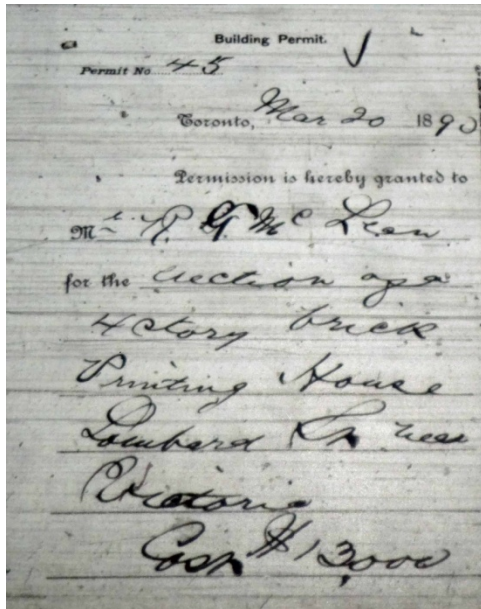 Building Permit.
Permit No. 45
Toronto, Mar 20 1890
Permission is hereby granted to
Mr. R G Mc Lean
for the erection of a
4 story brick
Printing House
Lombard St near
Victoria
Cost $13,000